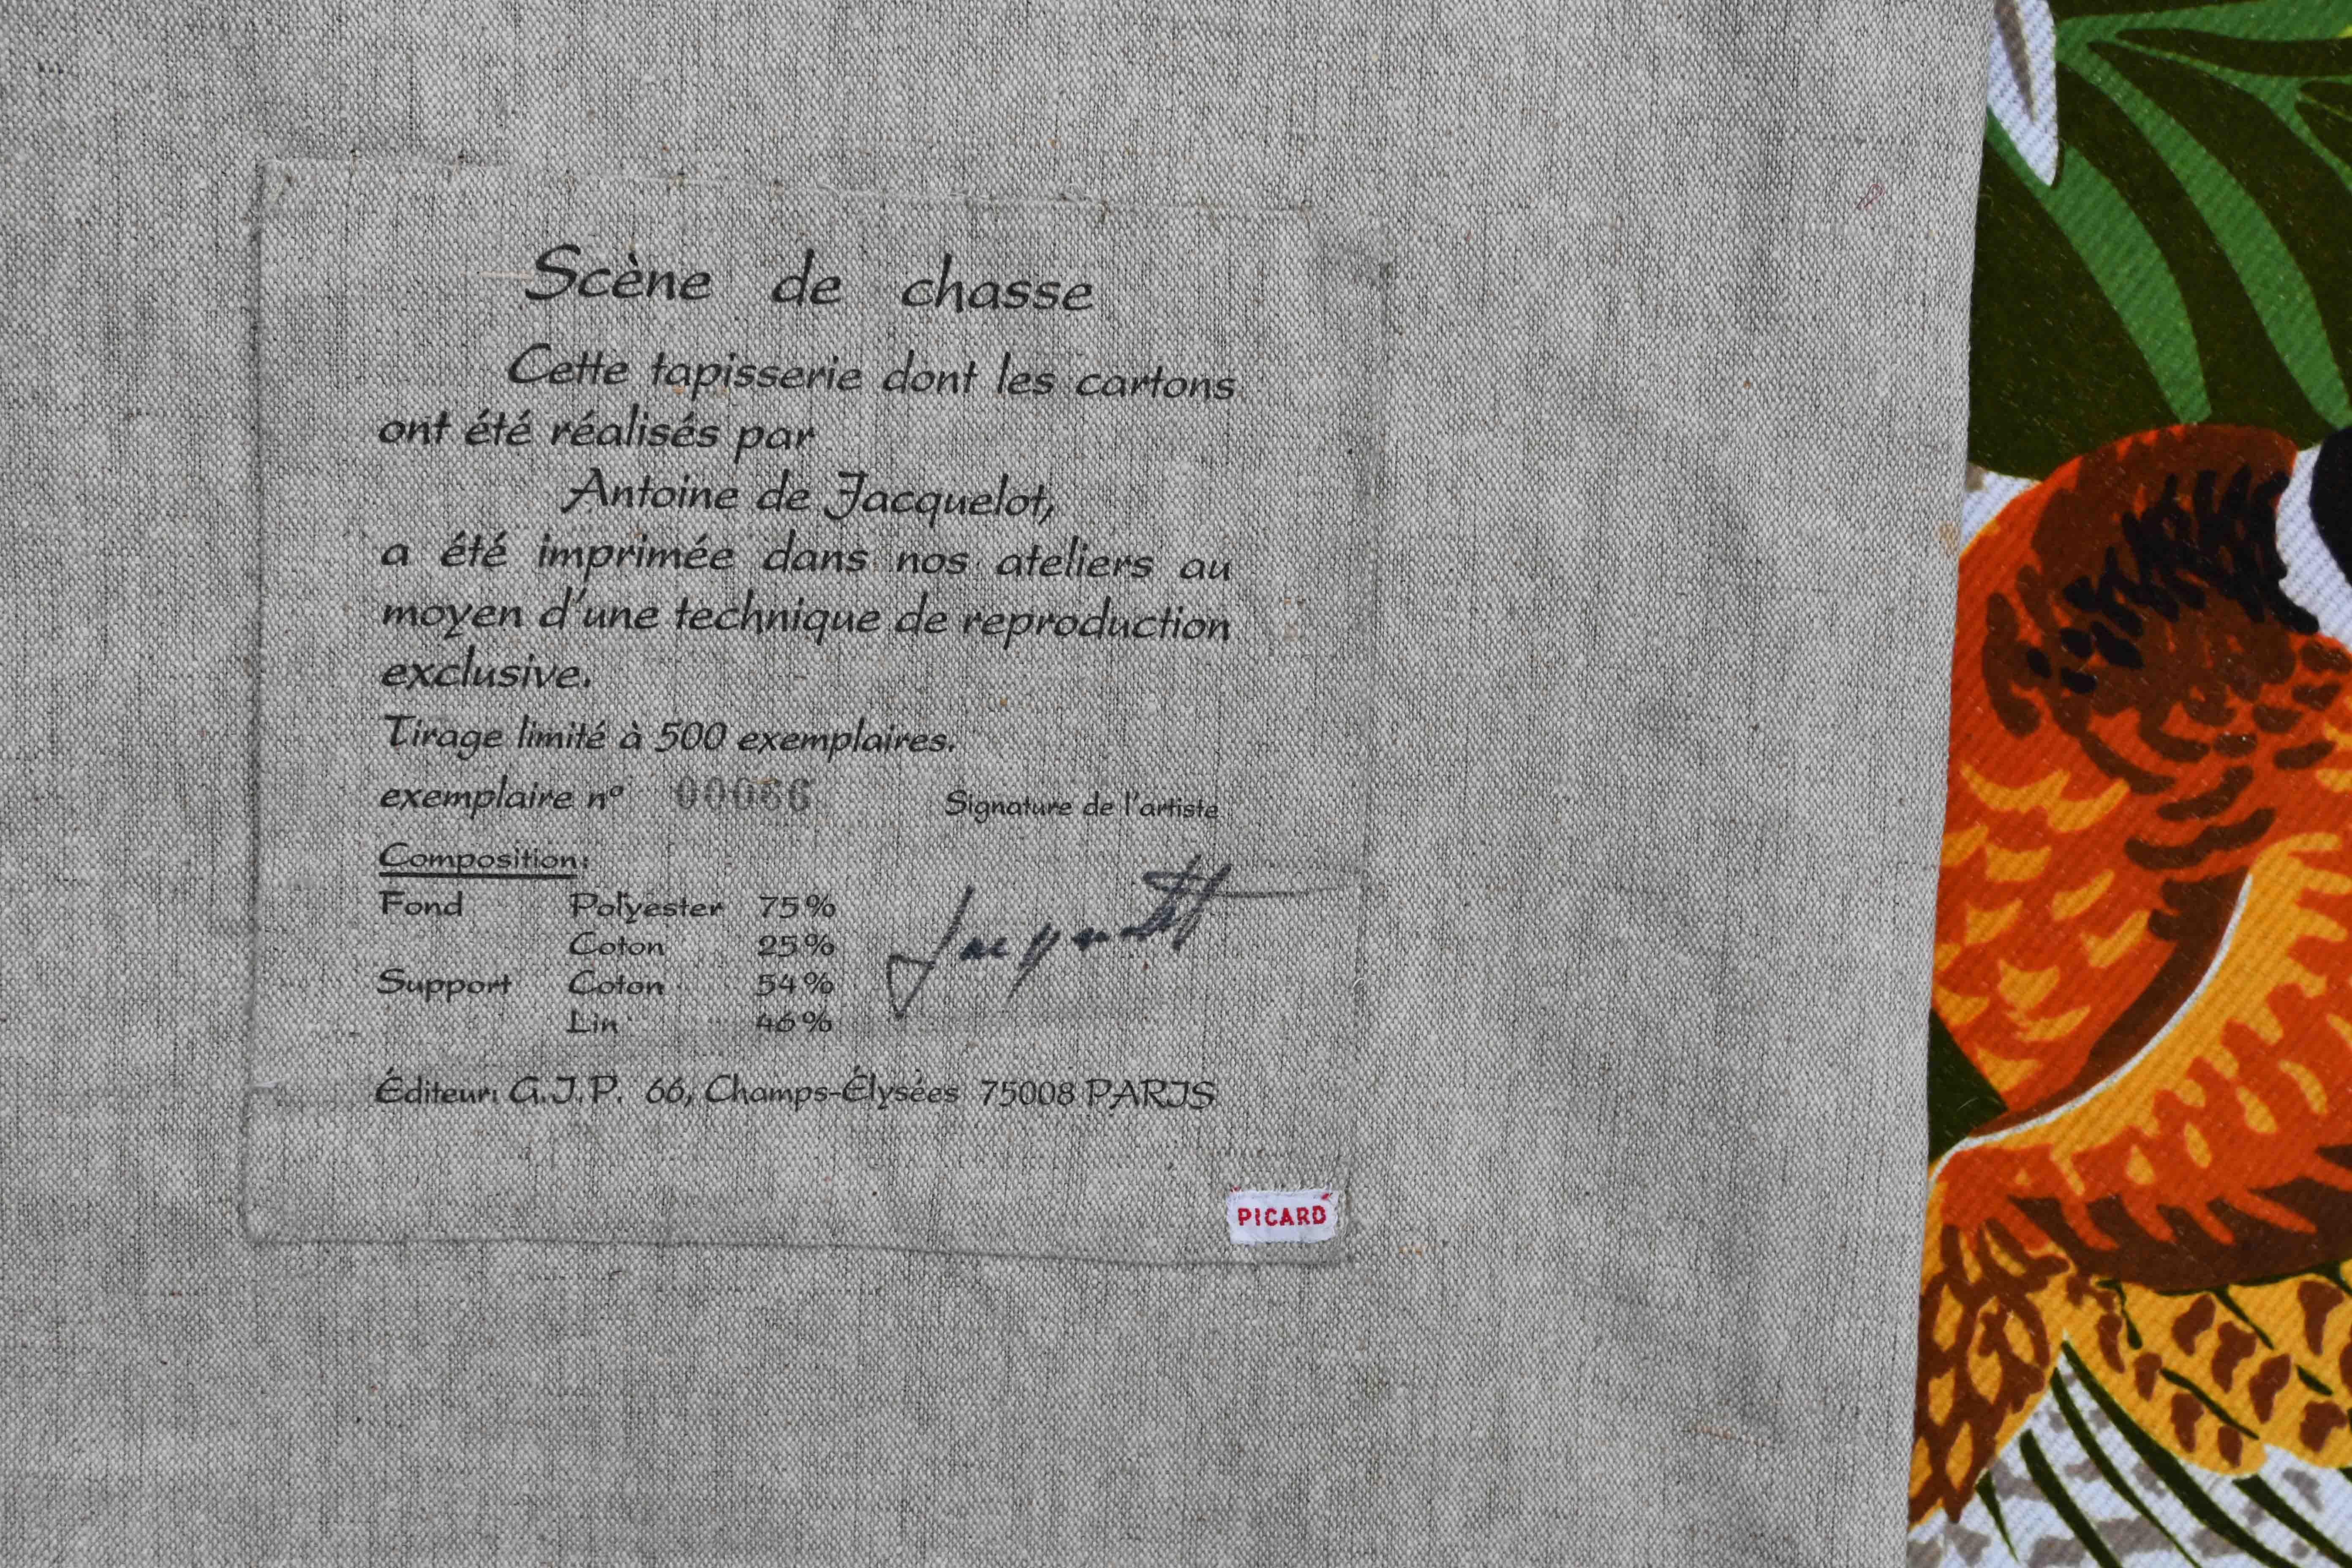 Scène de chasse
Cette tapisserie dont les cartons
ont été réalisés par
Antoine de Jacquelot,
a été imprimée dans nos ateliers au
moyen d'une technique de reproduction
exclusive.
Tirage limité à 500 exemplaires.
exemplaire nº 00066 Signature de l'artiste
Composition:
Fond Polyester 75%
Coton 25%
Support Coton 54%
Lin 46%
Jacquelot
Éditeur: G.J.P. 66, Champs-Élysées 75008 PARJS
PICARD